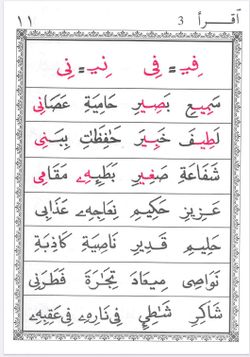 أقرأ 3 ١١
فِيـ = فِى نِيـ = نِى
سَمِيعِ بَصِيرِ حَامِيَةِ عَصَانِى
لَطِيفَ خَبِيرَ حٰفِظٰتِ بِبَنِى
شَفَاعَةِ صغِيرِ مَقَامِى
عَزِيزِ حَكِيمِ نِعَاجِهٖ عَذَابِى
حَلِيمِ قَدِيرِ نَاصِيَةِ كَاذِبَةِ
نَوَاصِى مِيعَادَ تِجَارَةَ فَطَرَنِى
شَاكِرِ شَاطِئِ فِى نَارِهٖ فِى عَقِبِهٖ